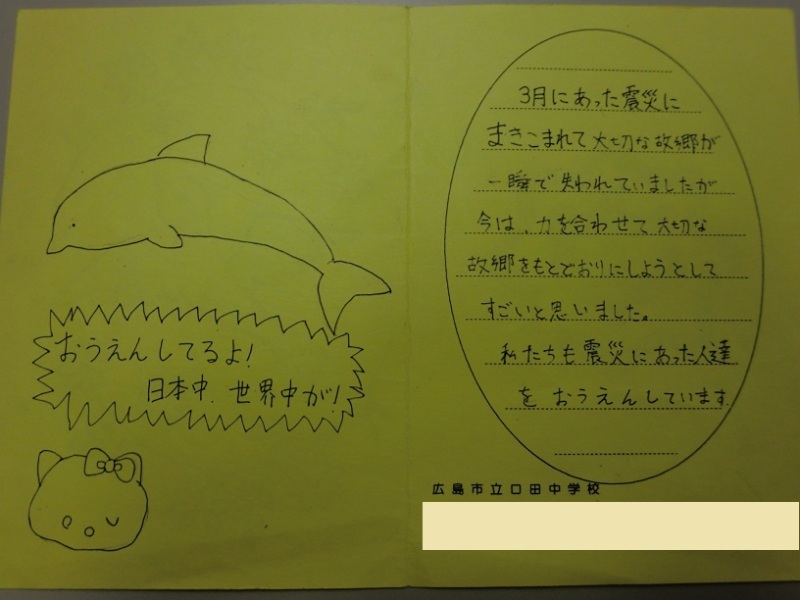 おうえんしてるよ!
日本中、世界中が!
3月にあった震災に
まきこまれて大切な故郷が
一瞬で失われていましたが
今は、力を合わせて大切な
故郷をもとどおりにしようとして
すごいと思いました。
私たちも震災にあった人達
をおうえんしています
広島市立口田中学校